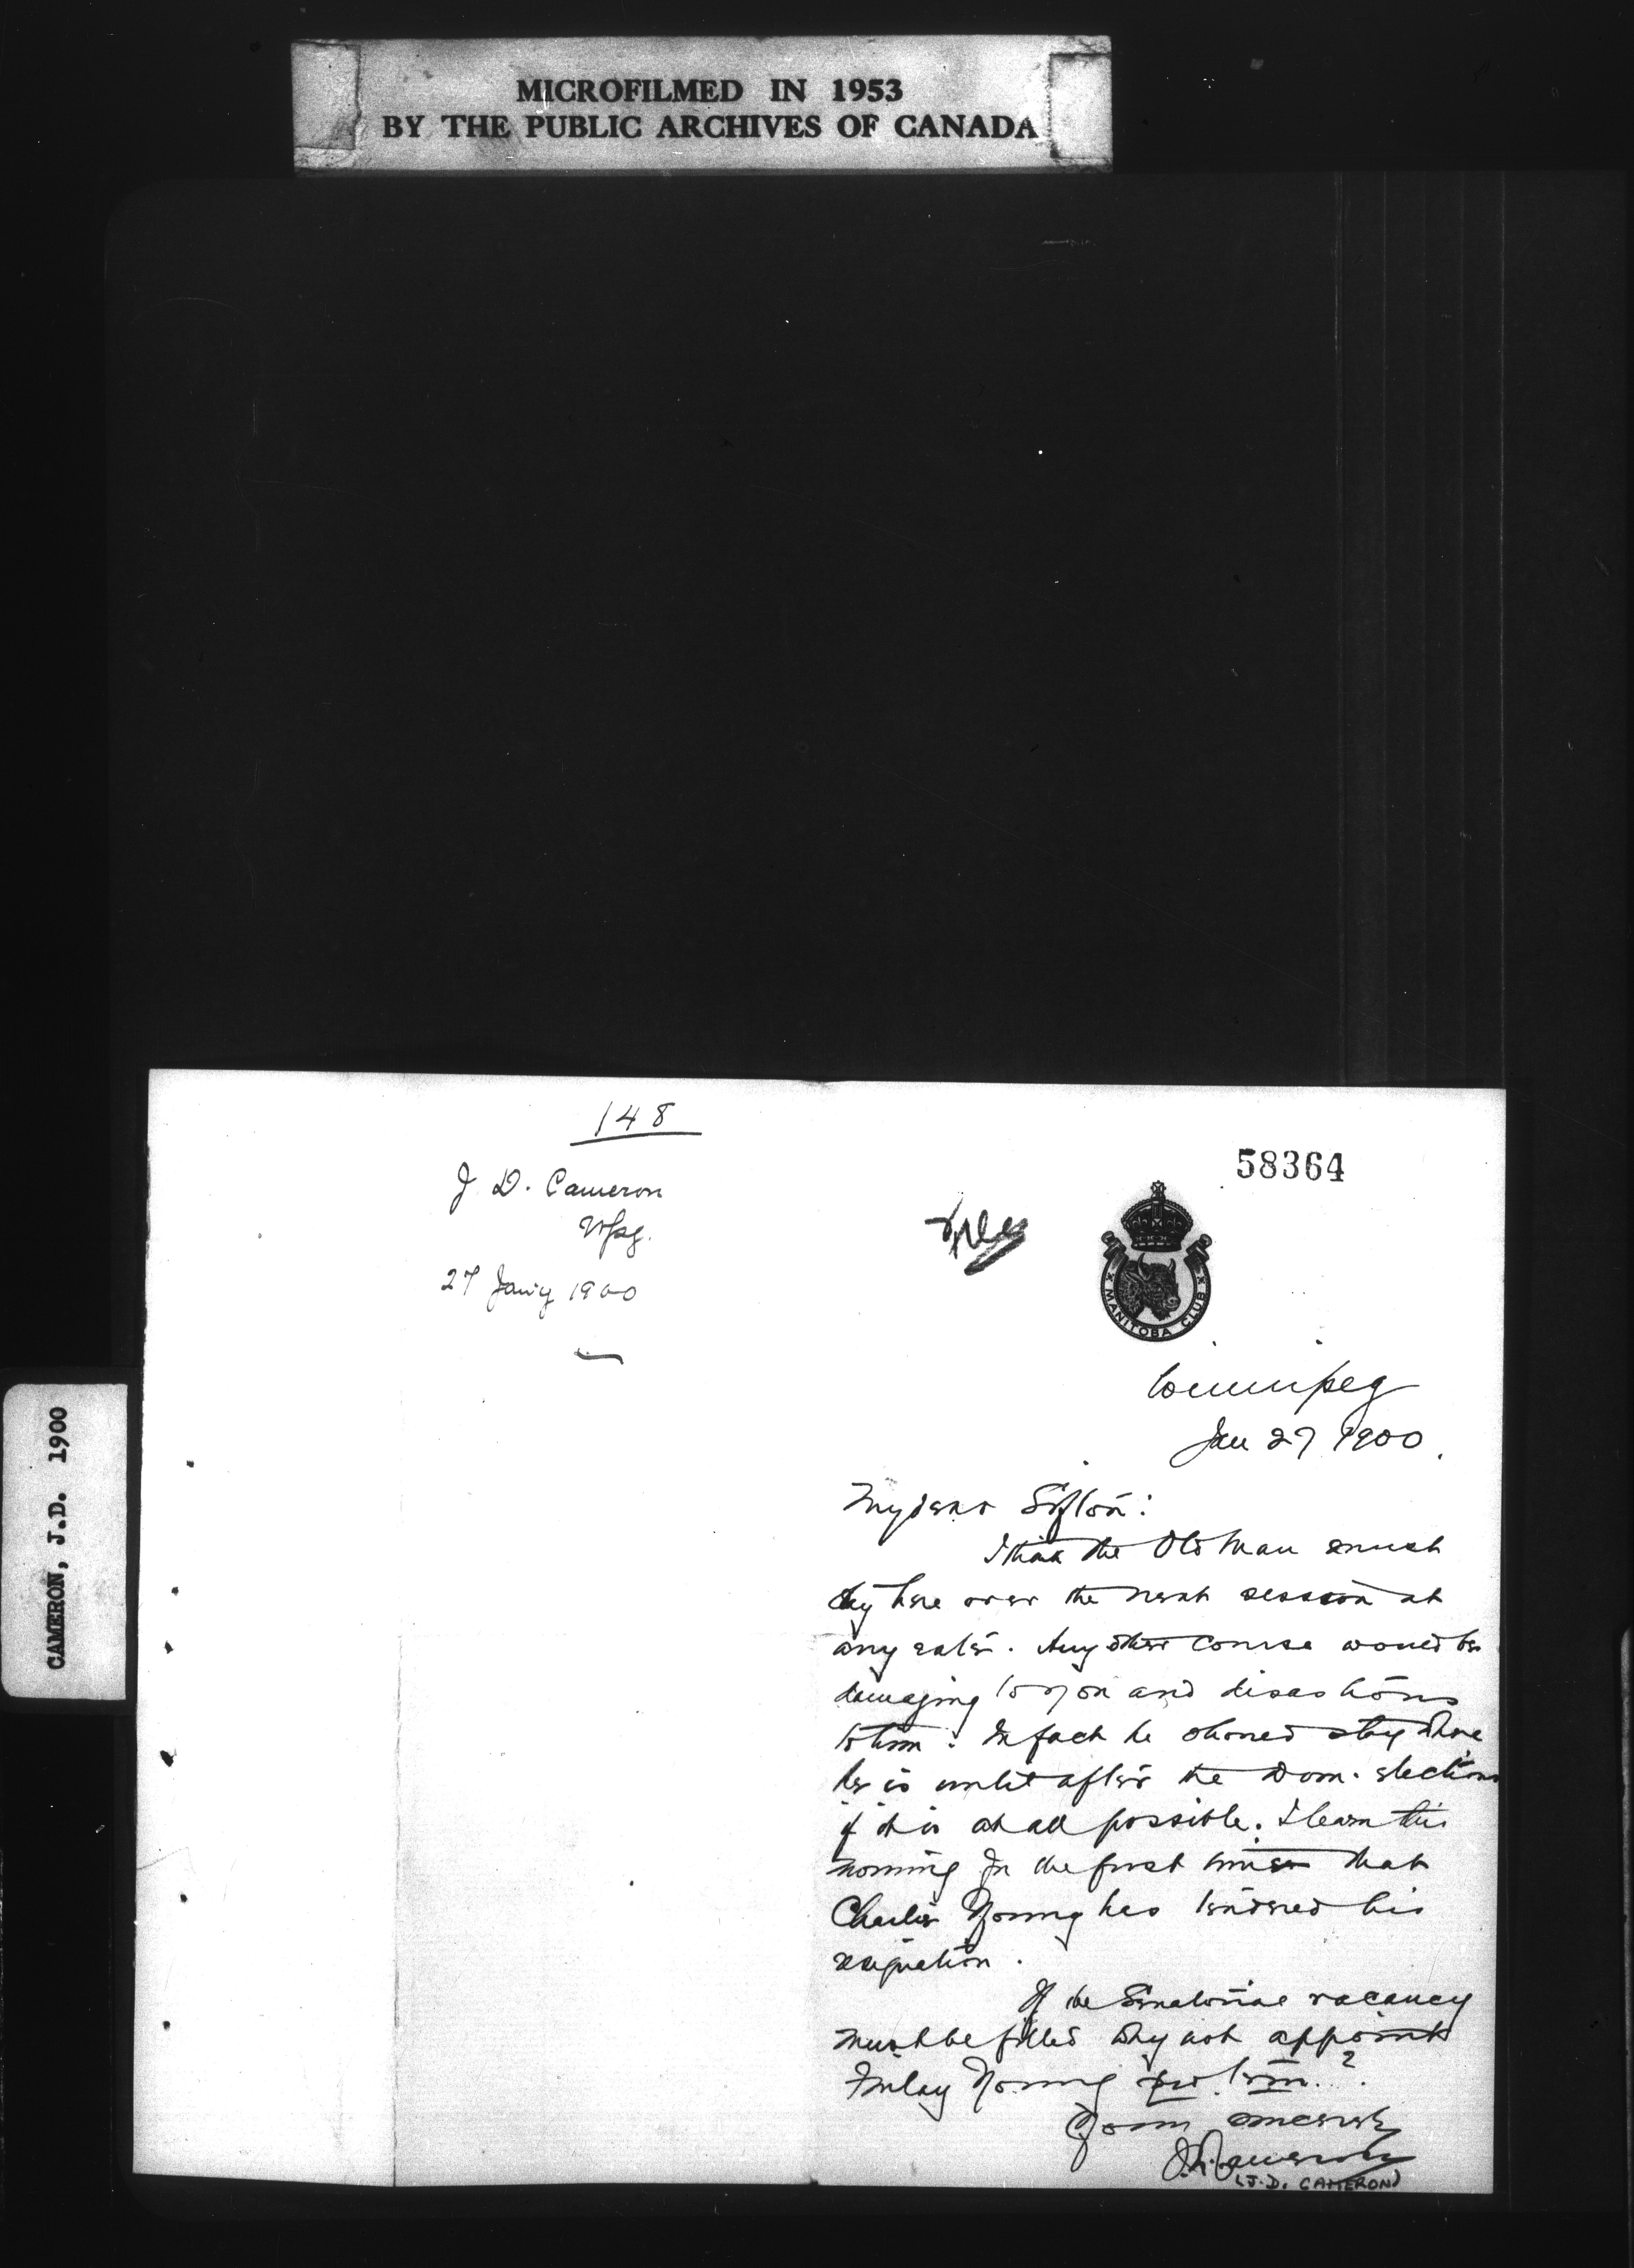 MICROFILMED IN 1953
BY THE PUBLIC ARCHIVES OF CANADA
CAMERON, J.D. 1900
148
J. D. Cameron
Wpg.
27 Jan'y 1900
58364
MANITOBA CLUB
Winnipeg
Jan 27 1900.
My dear Sifton:
I think the Old Man must
stay here over the next session at
any rate. Any other course would be
damaging to you and disastrous
to him. In fact he should stay where
he is until after the Dom. elections
if it is at all possible. I learn this
morning for the first time that
Charlie Young has tendered his
resignation.
If the Senatorial vacancy
must be filled why not appoint
Finlay Young pro tem.?
Yours sincerely
J.D. Cameron
(J.D. CAMERON)